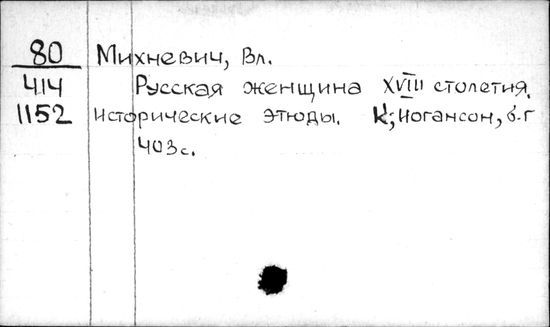 80 Михневич, Вл.
414 Русская женщина XVIII столетия.
1152 исторические этюды. К; Иогансон, б.г
403с.